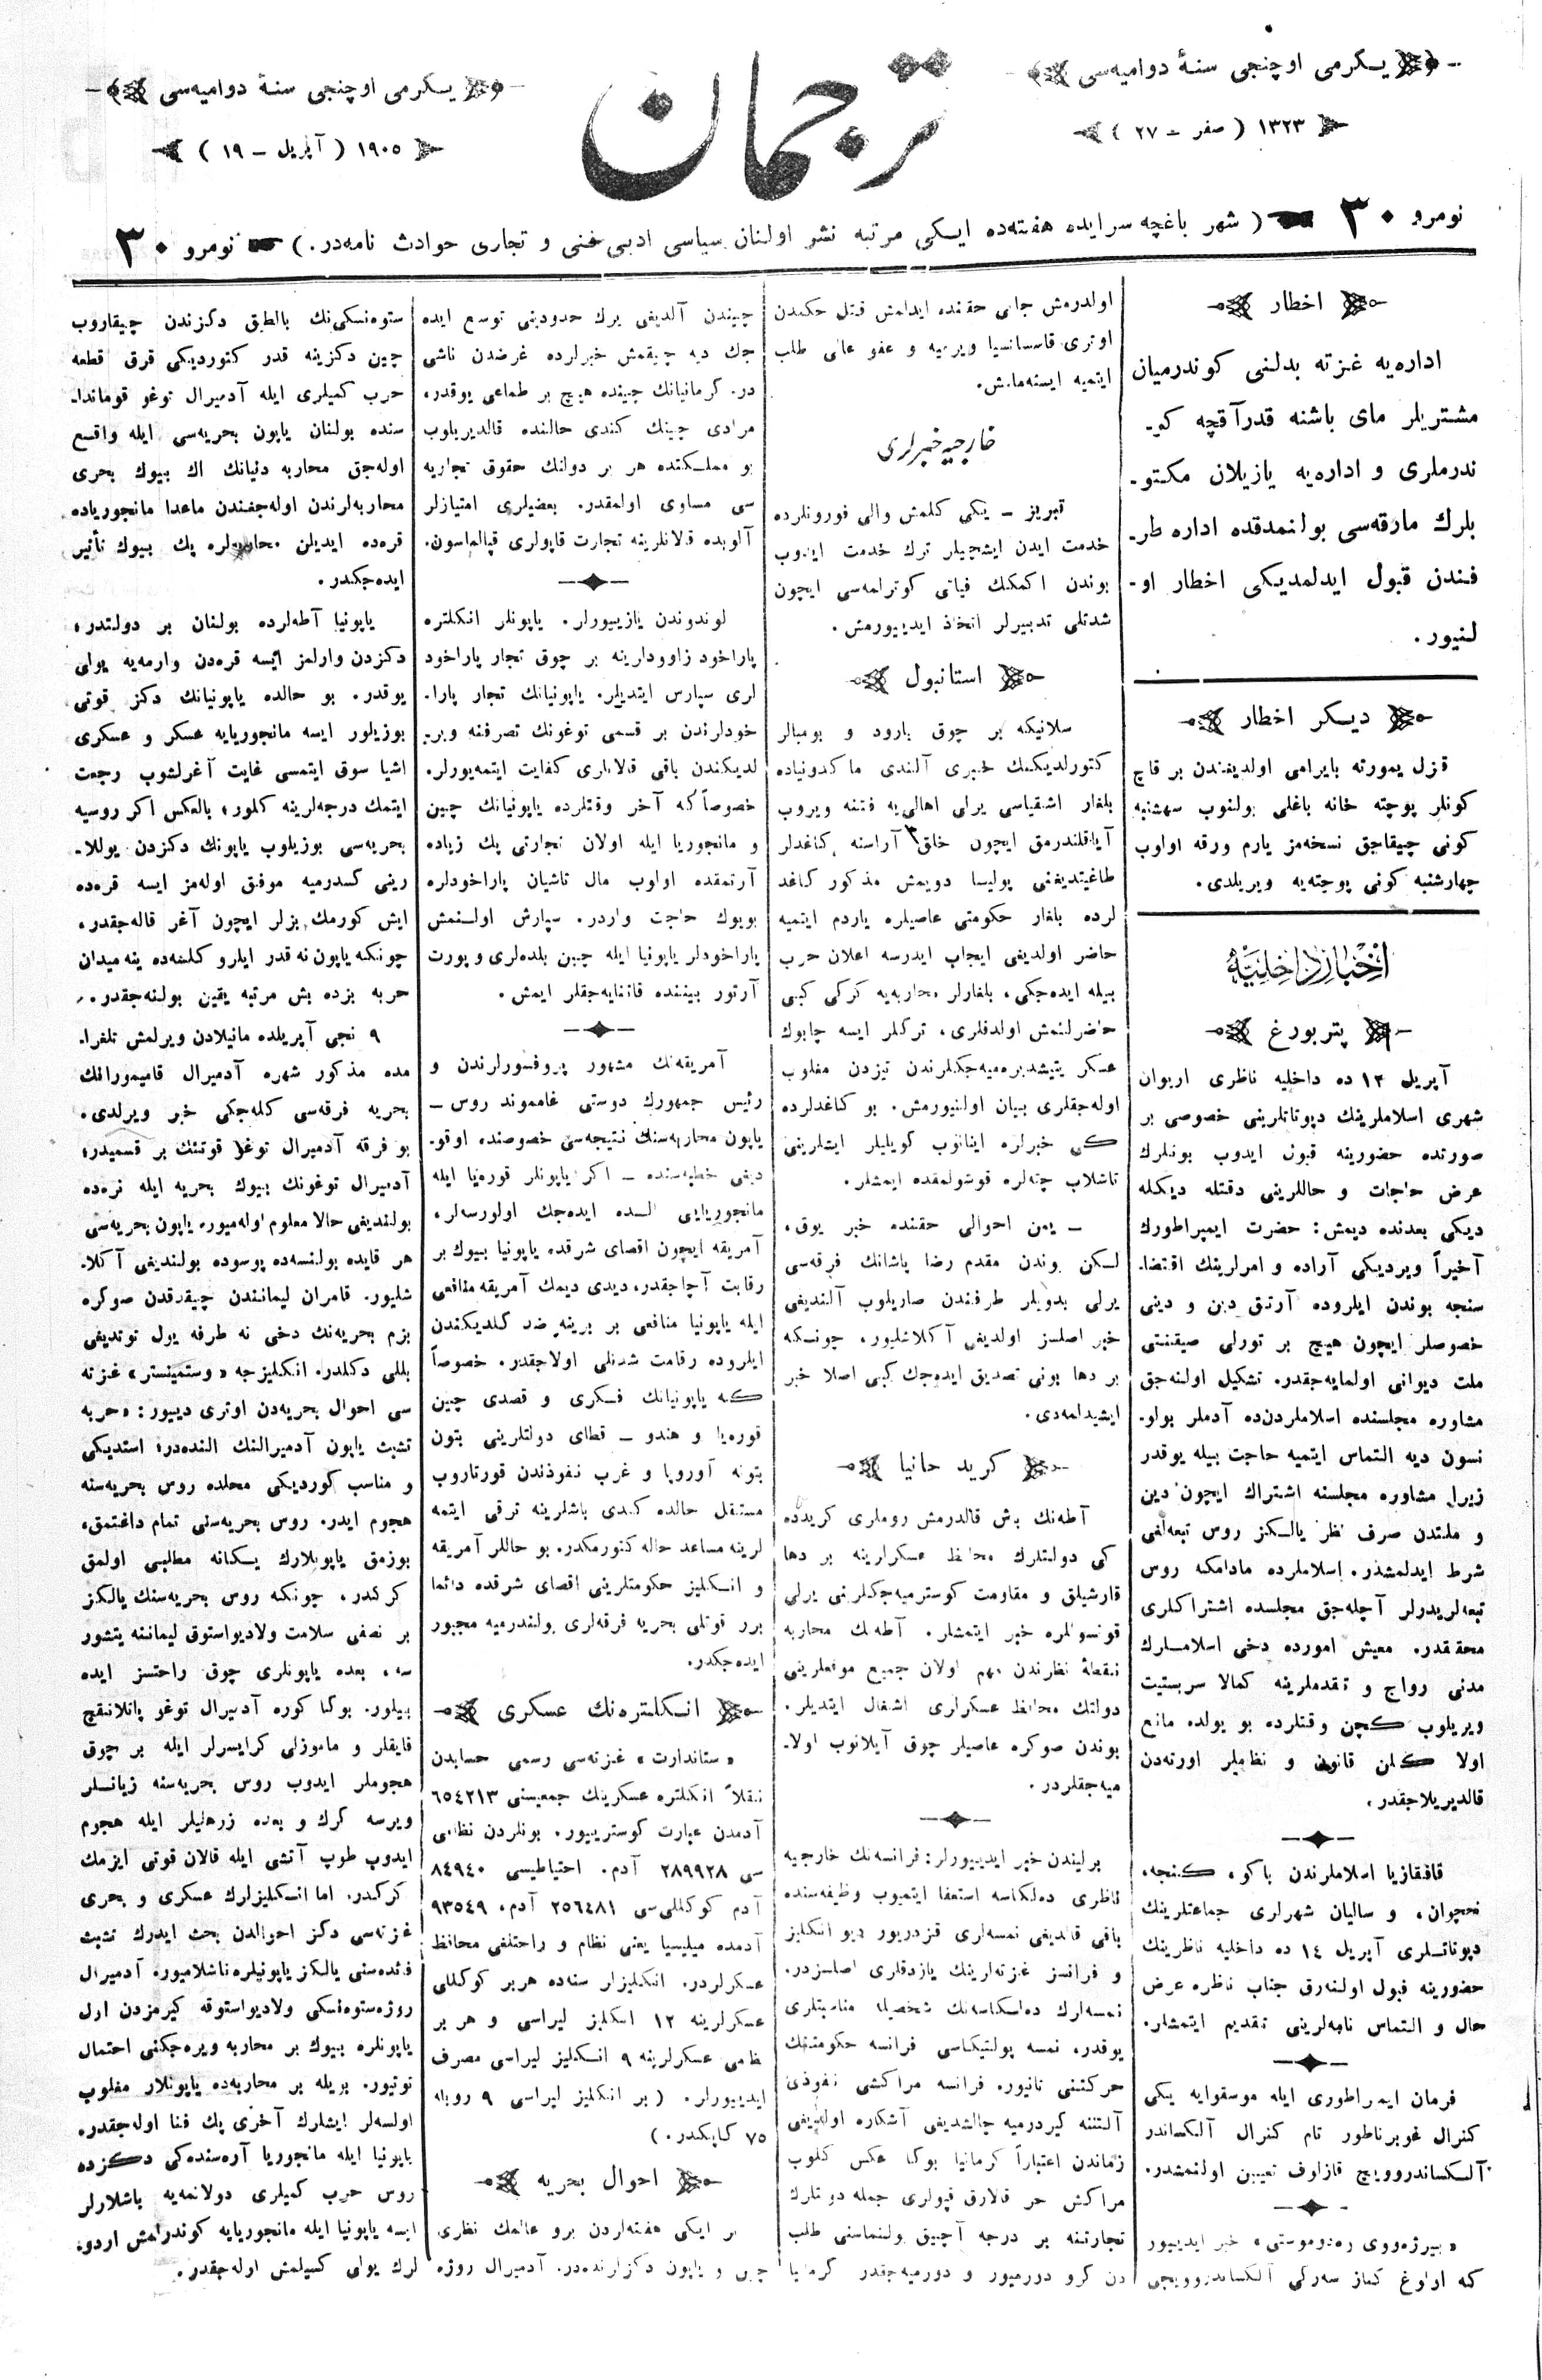 يكرمى اوچنجى سنۀ دواميه‌سى
١٣٢٣ ( صفر - ٢٧ )
ترجمان
يكرمى اوچنجى سنۀ دواميه‌سى
١٩٠٥ ( آپريل - ١٩ )
نومرو ٣٠ ( شهر باغچه سرايده هفته‌ده ايكى مرتبه نشر اولنان سياسى ادبى فنى و تجارى حوادث نامه‌در. ) نومرو ٣٠
اخطار
اداره‌يه غزته بدلنى كوندرميان
مشتريلر ماى باشنه قدر آقچه كو-
ندرملرى و اداره‌يه يازيلان مكتو-
بلرك مارقه‌سى بولنمدقده اداره طر-
فندن قبول ايدلمديكى اخطار او-
لنيور.
ديكر اخطار
قزل يمورته بايرامى اولديغندن بر قاچ
كونلر پوچته خانه باغلى بولنوب سه‌شنبه
كونى چيقاجق نسخه‌مز يارم ورقه اولوب
چهارشنبه كونى پوچته‌يه ويريلدى.
اخبار داخليه
پتربورغ
آپريل ١٣ ده داخليه ناظرى اريوان
شهرى اسلاملرينك دپوتاتلرينى خصوصى بر
صورتده حضورينه قبول ايدوب بونلرك
عرض حاجات و حاللرينى دقتله ديكله
ديكى بعدنده ديمش: حضرت ايمپراطورك
آخيراً ويرديكى آراده و امرلرينك اقتضا-
سنجه بوندن ايلروده آرتق دين و دينى
خصوصلر ايچون هيچ بر تورلى صيقنتى
ملت ديوانى اولمايه‌جقدر. تشكيل اولنه‌جق
مشاوره مجلسنده اسلاملردن‌ده آدملر بولو-
نسون ديه التماس ايتميه حاجت بيله يوقدر
زيرا مشاوره مجلسنه اشتراك ايچون دين
و ملتدن صرف نظر يالكز روس تبعه‌لغى
شرط ايدلمشدر. اسلاملرده مادامكه روس
تبعه‌لريدرلر آچله‌جق مجلسده اشتراكلرى
محققدر. معيش امورده دخى اسلاملرك
مدنى رواج و تقدملرينه كمالا سربستيت
ويريلوب كچن وقتلرده بو يولده مانع
اولا كلن قانون و نظاملر اورته‌دن
قالديريلاجقدر.
قافقازيا اسلاملرندن باكو، كنجه،
نخچوان، و ساليان شهرلرى جماعتلرينك
دپوتاتلرى آپريل ١٤ ده داخليه ناظرينك
حضورينه قبول اولنه‌رق جناب ناظره عرض
حال و التماس نامه‌لرينى تقديم ايتمشلر.
فرمان ايمپراطورى ايله موسقوايه يكى
كنرال غوبرناطور تام كنرال آلكساندر
آلكساندروويچ قازلوف تعيين اولنمشدر.
«بيرژه‌ووى ودوموستى» خبر ايديور
كه اولوغ كناز سه‌رگى آلكساندروويچى
اولدرمش جانى حقنده ايدلمش قتل حكمندن
اوترى قاسساسيا ويرميه و عفو عالى طلب
ايتميه ايسته‌مامش.
خارجيه خبرلرى
تبريز - يكى كلمش والى فورونلرده
خدمت ايدن ايشجيلر ترك خدمت ايدوب
بوندن اكمكك فياتى كوترلمه‌سى ايچون
شدتلى تدبيرلر اتخاذ ايدييورمش.
استانبول
سلانيكه بر چوق بارود و بومبالر
كتورلديكنك خبرى آلندى ماكدونياده
بلغار اشقياسى يرلى اهالى‌يه فتنه ويروب
آياقلندرمق ايچون خلق آراسنه كاغدلر
طاغيتديغنى پوليسا دويمش مذكور كاغد
لرده بلغار حكومتى عاصيلره ياردم ايتميه
حاضر اولديغى ايجاب ايدرسه اعلان حرب
بيله ايده‌جكى، بلغارلر محاربه‌يه كركى كبى
حاضرلنمش اولدقلرى، تركلر ايسه چابوك
عسكر يتيشديره‌ميه‌جكلرندن تيزدن مغلوب
اوله‌جقلرى بيان اولنيورمش. بو كاغدلرده
كى خبرلره اينانوب كويليلر ايشلرينى
تاشلاب چته‌لره قوشولمقده ايمشلر.
- يمن احوالى حقنده خبر يوق،
لكن بوندن مقدم رضا پاشانك فرقه‌سى
يرلى بدويلر طرفندن صاريلوب آلنديغى
خبر اصلسز اولديغى آكلاشليور، چونكه
بر دها بونى تصديق ايده‌جك كبى اصلا خبر
ايشيدلمه‌دى.
كريد حانيا
آطه‌نك باش قالدرمش روملرى كريدده
كى دولتلرك محافظ عسكرلرينه بر دها
قارشيلق و مقاومت كوسترميه‌جكلرنى يرلى
قونسوللره خبر ايتمشلر. آطه‌نك محاربه
نقطۀ نظرندن مهم اولان جميع موقعلرينى
دولتك محافظ عسكرلرى اشغال ايتديلر.
بوندن صوكره عاصيلر چوق آيلانوب اولا-
ميه‌جقلردر.
برليندن خبر ايدييورلر: فرانسه‌نك خارجيه
ناظرى ده‌لكاسه استعفا ايتميوب وظيفه‌سنده
باقى قالديغى نمسه‌لرى قزدريور ديو انكليز
و فرانسز غزته‌لرينك يازدقلرى اصلسزدر.
نمسه‌لرك ده‌لكاسه‌نك شخصيله مناسبتلرى
يوقدر، نمسه پولتيكاسى فرانسه حكومتنك
حركتنى تانيور. فرانسه مراكشى نفوذى
آلتننه كيردرميه چالشديغى آشكاره اولديغى
زماندن اعتباراً كرمانيا بوكا عكس كلوب
مراكش حر قالارق قپولرى جمله دولتلرك
تجارتنه بر درجه آچيق بولنماسنى طلب
دن كرو دورميور و دورميه‌جقدر كرمانيا
چيندن آلديغى يرك حدودينى توسع ايده
جك ديه چيقمش خبرلرده غرضدن ناشى
در. كرمانيانك چينده هيچ بر طماعى يوقدر،
مرادى چينك كندى حالنده قالديريلوب
بو مملكتده هر بر دولتك حقوق تجاريه
سى مساوى اولمقدر. بعضيلرى امتيازلر
آلوبده قالانلرينه تجارت قاپولرى قپالماسون.
لوندوندن يازييورلر. ياپونلر انكلتره
پاراخود زاوودلرينه بر چوق تجار پاراخود
لرى سپارس ايتديلر. ياپونيانك تجار پارا-
خودلرندن بر قسمى توغونك تصرفنه ويري-
لديكندن باقى قالانلرى كفايت ايتمه‌يورلر.
خصوصاً كه آخر وقتلرده ياپونيانك چين
و مانجوريا ايله اولان تجارتى پك زياده
آرتمقده اولوب مال تاشيان پاراخودلره
بويوك حاجت واردر. سپارش اولنمش
پاراخودلر ياپونيا ايله چين بلده‌لرى و پورت
آرتور بيننده قاتنايه‌جقلر ايمش.
آمريقه‌نك مشهور پروفسورلرندن و
رئيس جمهورك دوستى غامموند روس -
ياپون محاربه‌سنك نتيجه‌سى خصوصنده اوقو-
ديغى خطبه‌سنده - اكر ياپونلر قوره‌يا ايله
مانجوريايى الده ايده‌جك اولورسه‌لر،
آمريقه ايچون اقصاى شرقده ياپونيا بيوك بر
رقابت آچاجقدر، ديدى ديمك آمريقه منافعى
ايله ياپونيا منافعى بر برينه ضد كلديكندن
ايلروده رقامت شدتلى اولاجقدر. خصوصاً
كه ياپونيانك فكرى و قصدى چين
قوره‌يا و هندو - قطاى دولتلرينى بتون
بتونه آوروپا و غرب نفوذندن قورتاروب
مستقل حالده كندى باشلرينه ترقى ايتمه
لرينه مساعد حاله كتورمكدر. بو حاللر آمريقه
و انكليز حكومتلرينى اقصاى شرقده دائما
برر قوتلى بحريه فرقه‌لرى بولندرميه مجبور
ايده‌جكدر.
انكلتره‌نك عسكرى
«ستاندارت» غزته‌سى رسمى حسابدن
نقلاً انكلتره عسكرينك جمعيسنى ٦٥٤٢١٣
آدمدن عبارت كوسترييور. بونلردن نظامى
سى ٢٨٩٩٢٨ آدم. احتياطيسى ٨٤٩٤٠
آدم كوكللى‌سى ٢٥٦٤٨١ آدم، ٩٣٥٤٩
آدمده ميليسيا يعنى نظام و راحتلغى محافظ
عسكرلردر. انكليزلر سنه‌ده هر بر كوكللى
عسكرلرينه ١٢ انكليز ليراسى و هر بر
نظامى عسكرلرينه ٩ انكليز ليراسى مصرف
ايدييورلر. ( بر انكليز ليراسى ٩ روبله
٧٥ كاپكدر. )
احوال بحريه
بر ايكى هفته‌لردن برو عالمك نظرى
چين و ياپون دكزلرنده‌در. آدميرال روژه
ستوه‌نسكى‌نك بالطق دكزندن چيقاروب
چين دكزينه قدر كتورديكى قرق قطعه
حرب كميلرى ايله آدميرال توغو قوماندا-
سنده بولنان ياپون بحريه‌سى ايله واقع
اوله‌جق محاربه دنيانك اك بيوك بحرى
محاربه‌لرندن اوله‌جغندن ماعدا مانجورياده
قره‌ده ايديلن محاربه‌لره پك بيوك تأثير
ايده‌جكدر.
ياپونيا آطه‌لرده بولنان بر دولتدر؛
دكزدن وارلمز ايسه قره‌دن وارمه‌يه يولى
يوقدر. بو حالده ياپونيانك دكز قوتى
بوزيلور ايسه مانجوريايه عسكر و عسكرى
اشيا سوق ايتمسى غايت آغرلشوب رجعت
ايتمك درجه‌لرينه كلور؛ بالعكس اكر روسيه
بحريه‌سى بوزيلوب ياپونك دكزدن يوللا-
رينى كسدرميه موفق اوله‌مز ايسه قره‌ده
ايش كورمك بزلر ايچون آغر قاله‌جقدر،
چونكه ياپون نه قدر ايلرو كلسه‌ده ينه ميدان
حربه بزده بش مرتبه يقين بولنه‌جقدر.
٩ نجى آپريلده مانيلادن ويرلمش تلغرا-
مده مذكور شهره آدميرال قاميمورانك
بحريه فرقه‌سى كله‌جكى خبر ويرلدى.
بو فرقه آدميرال توغو قوتنك بر قسميدر؛
آدميرال توغونك بيوك بحريه ايله نره‌ده
بولنديغى حالا معلوم اوله‌ميور، ياپون بحريه‌سى
هر قايده بولنسه‌ده پوسوده بولنديغى آكلا-
شليور. قامران ليمانندن چيقدقدن صوكره
بزم بحريه‌نك دخى نه طرفه يول توتديغى
بللى دكلدر. انكليزجه «وستمينستر» غزته
سى احوال بحريه‌دن اوترى دييور: «حربه
تشبث ياپون آدميرالنك النده‌در؛ استديكى
و مناسب كورديكى محلده روس بحريه‌سنه
هجوم ايدر. روس بحريه‌سنى تمام داغتمق،
بوزمق ياپونلارك يكانه مطلبى اولمق
كركدر، چونكه روس بحريه‌سنك يالكز
بر نصفى سلامت ولاديواستوق ليماننه يتشور
سه، بعده ياپونلرى چوق راحتسز ايده
بيلور. بوكا كوره آدميرال توغو پاتلانقچ
قايقلر و ماموزلى كرايسرلر ايله بر چوق
هجوملر ايدوب روس بحريه‌سنه زيانلر
ويرسه كرك و بعده زرهليلر ايله هجوم
ايدوب طوپ آتشى ايله قالان قوتى ايزمك
كركدر. اما انكليزلرك عسكرى و بحرى
غزته‌سى دكز احوالدن بحث ايدرك تشبث
فائده‌سنى يالكز ياپونيلره تاشلاميور، آدميرال
روژه‌ستوه‌نسكى ولاديواستوقه كيرمزدن اول
ياپونلره بيوك بر محاربه ويره‌جكنى احتمال
توتيور. بويله بر محاربه‌ده ياپونلار مغلوب
اولسه‌لر ايشلرك آخرى پك فنا اوله‌جقدر،
ياپونيا ايله مانجوريا آره‌سنده‌كى دكزده
روس حرب كميلرى دولانمه‌يه باشلارلر
ايسه ياپونيا ايله مانجوريايه كوندرلمش اردو-
لرك يولى كسيلمش اوله‌جقدر.